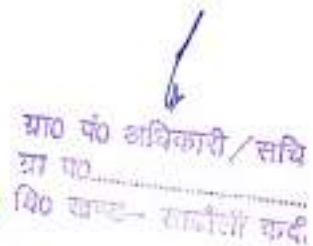 ग्रा0 पं0 अधिकारी / सचि
ग्रा पं0..............................
वि0 खण्ड-